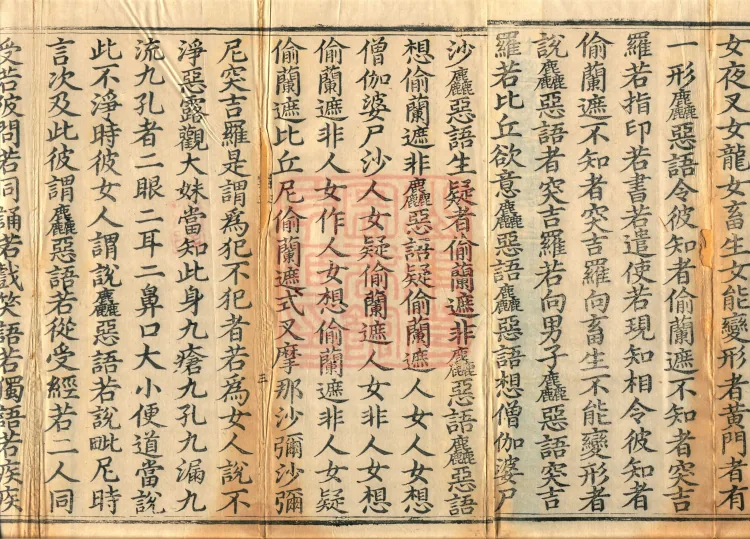 女夜叉女龍女畜生女能變形者黃門者有
一形麤惡語令彼知者偷蘭遮不知者突吉
羅若指印若書若遣使若現知相令彼知者
偷蘭遮不知者突吉羅向畜生不能變形者
說麤惡語者突吉羅若向男子麤惡語突吉
羅若比丘欲意麤惡語麤惡語想僧伽婆尸
沙麤惡語生疑者偷蘭遮非麤惡語麤惡語
想偷蘭遮非麤惡語疑偷蘭遮人女人女想
僧伽婆尸沙人女疑偷蘭遮人女非人女想
偷蘭遮非人女作人女想偷蘭遮非人女疑
偷蘭遮比丘尼偷蘭遮式叉摩那沙彌沙彌
尼突吉羅是謂為犯不犯者若為女人說不
淨惡露觀大妹當知此身九瘡九孔九漏九
流九孔者二眼二耳二鼻口大小便道當說
此不淨時彼女人謂說麤惡語若說毗尼時
言次及此彼謂麤惡語若從受經若二人同
受若彼問若同誦若戲笑語若獨語若疾疾